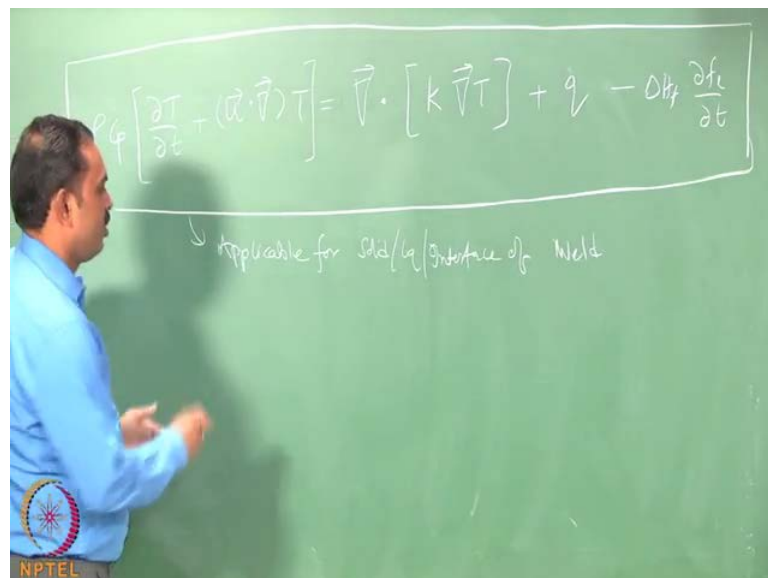 ρ Cp [ ∂T/∂t + (u⃗·∇⃗) T ] = ∇⃗ · [ K ∇⃗T ] + q − ΔHf ∂fL/∂t
Applicable for Solid/Lq/Interface of Weld
NPTEL